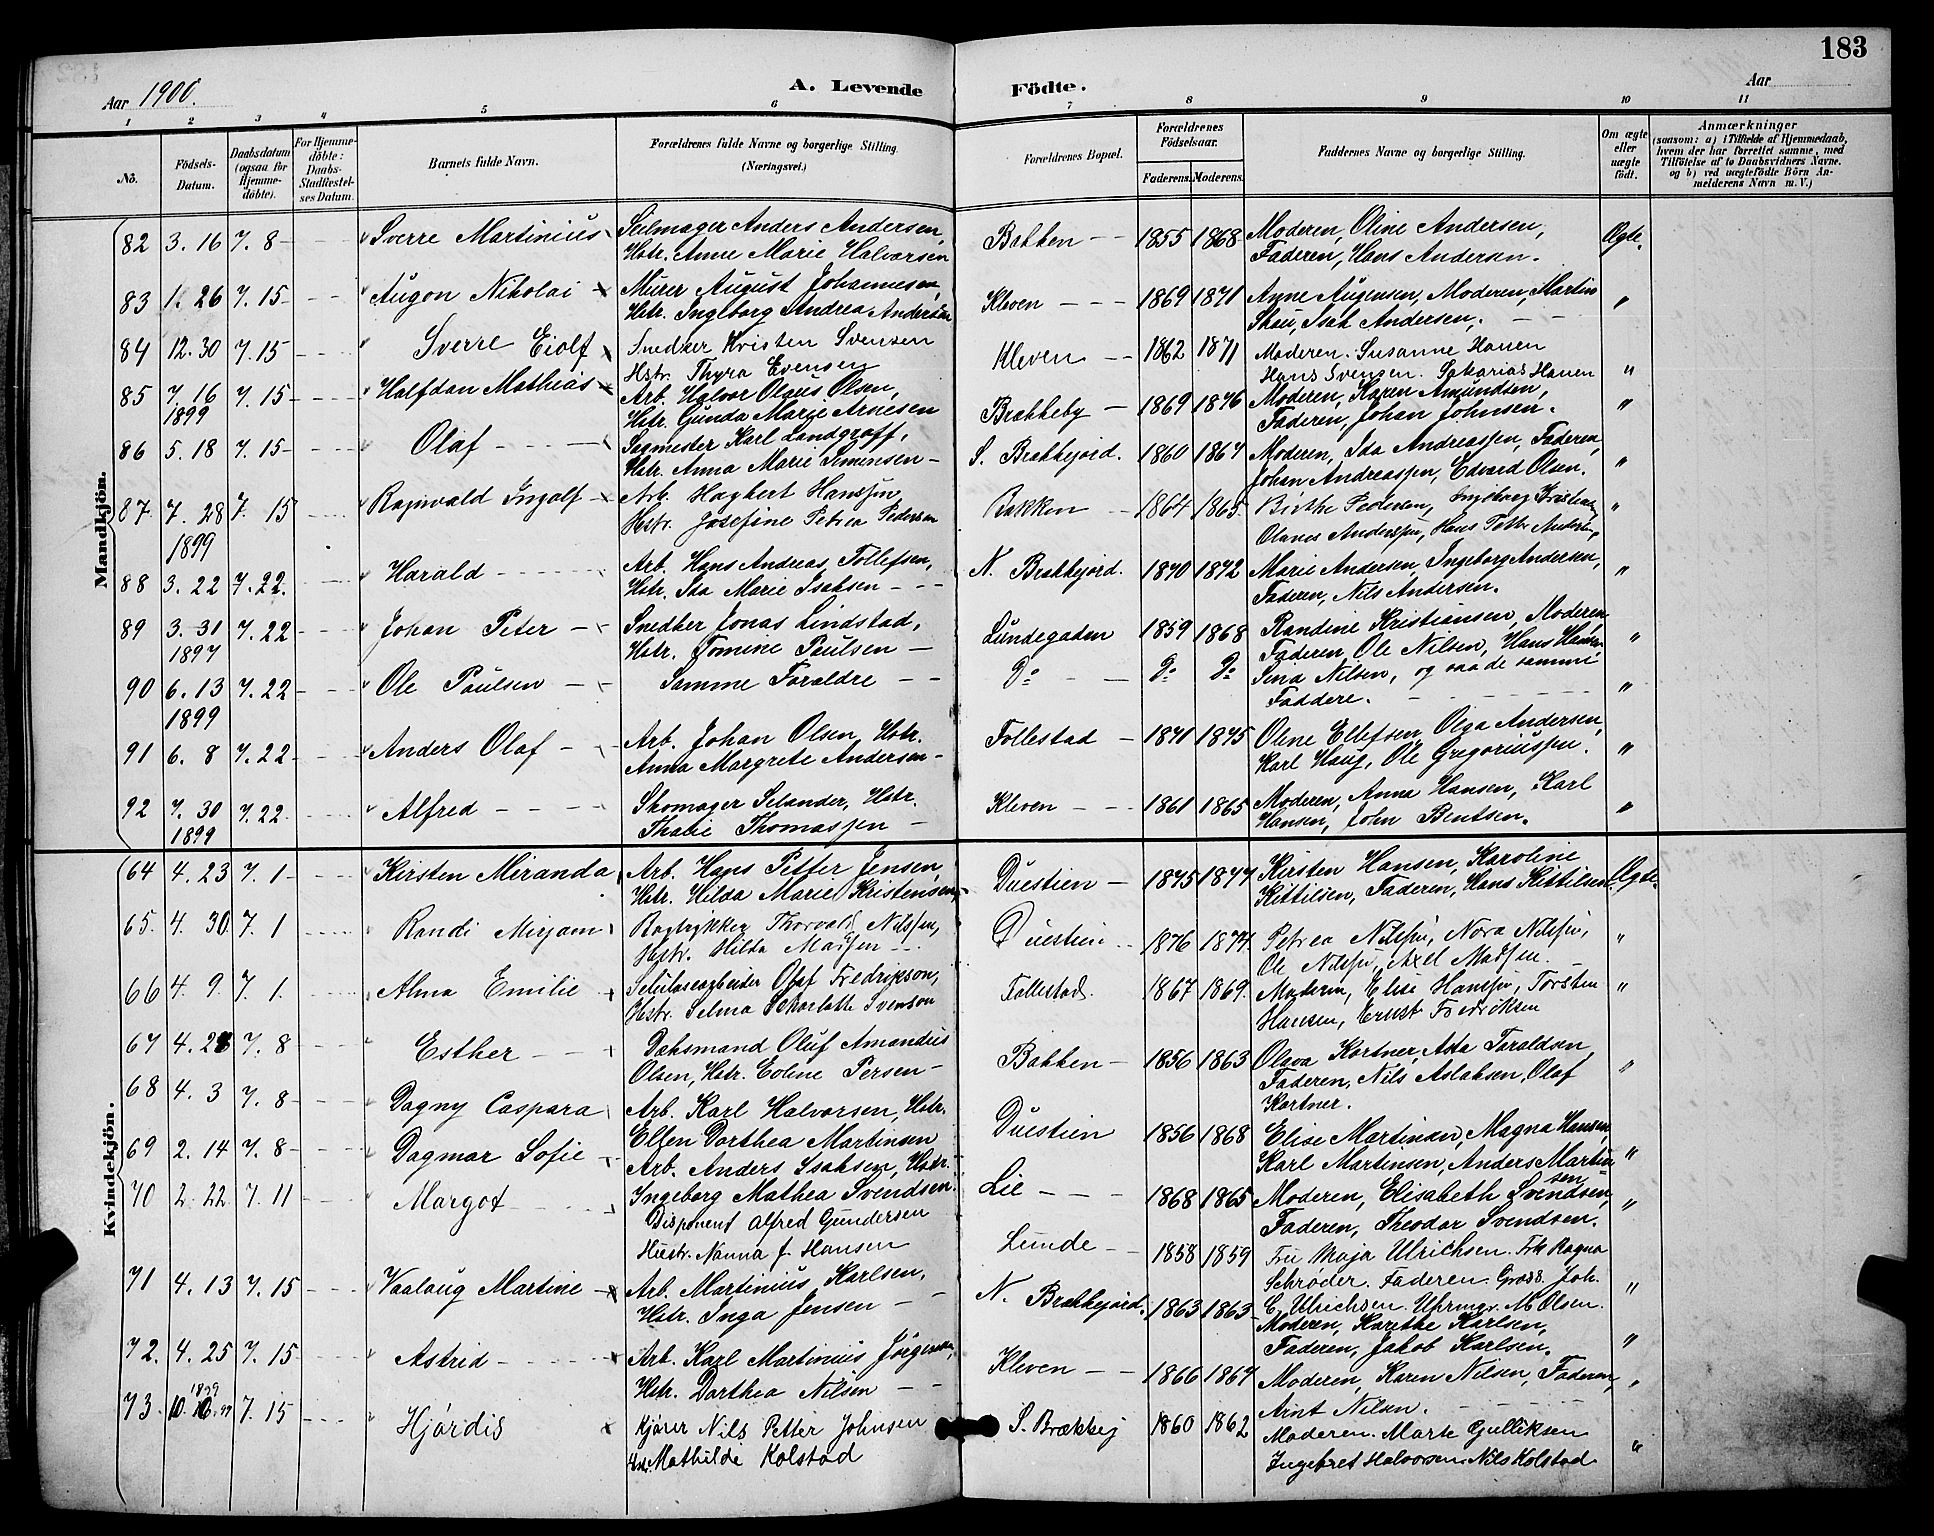 183
Aar 1900.
A. Levende Födte.
Aar
1 2 3 4 5 6 7 8 9 10 11
No.
Födsels-Datum.
Daabsdatum (ogsaa for Hjemme-döbte).
For Hjemme-döbte: Daabs-Stadfestel-ses Datum.
Barnets fulde Navn.
Forældrenes fulde Navne og borgerlige Stilling. (Næringsvei.)
Forældrenes Bopæl.
Forældrenes Födselsaar.
Faderens. Moderens.
Faddernes Navne og borgerlige Stilling.
Om ægte eller uægte födt.
Anmærkninger
(saasom: a) i Tilfælde af Hjemmedaab, hvem der har forrettet samme, med Tilföielse af to Daabsvidners Navne. og b) ved uægtefödte Börn Anmelderens Navn m. V.)
Mandkjön.
82 3. 16 7. 8 Sverre Martinius Seilmager Anders Andersen, Hstr. Anne Marie Halvorsen Bakken 1855 1868 Moderen, Oline Andersen, Faderen, Hans Andersen. Ægte.
83 1. 26 7. 15 Augon Nikolai Murer August Johannesen, Hstr. Ingeborg Andrea Andersen Kleven 1869 1871 Anne Augensen, Moderen, Martin Skau, Isak Andersen. "
84 12. 30 7. 15 Sverre Eiolf Snedker Kristen Svensen Hstr. Thyra Evensen Kleven 1862 1871 Moderen. Susanne Hauen Hans Svensen. Sakarias Hauen "
85 7. 16 1899 7. 15 Halfdan Mathias Arb. Halvor Olaus Olsen, Hstr. Gunda Marie Arnesen Brækkeby 1869 1876 Moderen, Karen Amundsen, Faderen, Johan Johnsen. "
86 5. 18 7. 15 Olaf Sagmester Karl Landgraff, Hstr. Anna Marie Simensen S. Brækkejord. 1860 1867 Moderen, Ida Andreassen, Faderen, Johan Andreassen, Edvard Olsen. "
87 7. 28 1899 7. 15 Ragnvald Ingolf Arb. Hagbert Hanssen, Hstr. Josefine Petrea Pedersen Bakken 1864 1865 Birthe Pedersen, Ingeborg Olaves Anderssen, Hans Petter "
88 3. 22 7. 22. Harald Arb. Hans Andreas Tollefsen, Hstr. Ida Marie Isaksen N. Brækkejord. 1870 1872 Marie Andersen, Ingeborg Andersen, Faderen, Nils Andersen. "
89 3. 31 1897 7. 22 Johan Peter Snedker Jonas Lindstad, Hstr. Tomine Paulsen Lundegaden 1859 1868 Randine Kristiansen, Moderen Faderen Ole Nilsen, Hans "
90 6. 13 1899 7. 22 Ole Paulsen Samme Foraldre Do Do Do Sina Nilsen, og saa de samme Faddere. "
91 6. 8 7. 22 Anders Olaf Arb. Johan Olsen, Hstr. Anna Margrete Andersen Follestad 1871 1875 Oline Ellefsen, Olga Andersen, Karl Haug, Ole Gregoriussen. "
92 7. 30 1899 7. 22 Alfred Skomager Selander, Hstr. Thalie Thomassen Kleven 1861 1865 Moderen, Anna Hansen, Karl Hansen, John Bentsen. "
Kvindekjön.
64 4. 23 7. 1 Kirsten Miranda Arb. Hans Petter Jensen, Hstr. Hilda Marie Kristensen, Duestien 1875 1877 Kirsten Hansen, Karoline Kittilsen, Faderen, Hans Kittilsen Ægte.
65. 4. 30. 7. 1 Randi Mirjam Bogtrykker Thorvald Nilssen, Hstr. Hilda Madsen Duestien 1876 1877. Petrea Nilssen, Nora Nilssen, Ole Nilssen, Axel Madsen. "
66 4. 9. 7. 1. Alma Emilie Celulosearbeider Olaf Fredrikson, Hstr. Selma Scharlotte Svenson Follestad. 1867 1869. Moderen, Elise Hanssen, Torsten Hansen, Ernst Fredriksen "
67 4. 28 7. 8 Esther Doksmand Oluf Amandus Olsen, Hstr. Eoline Persen Bakken 1856 1863 Olava Kortner, Asta Taraldsen, Faderen, Nils Aslaksen, Olaf Kortner. "
68 4. 3 7. 8 Dagny Caspara Arb. Karl Halvorsen, Hstr. Ellen Dorthea Martinsen Duestien 1856 1868 Elise Martinsen, Magna Hansen, Karl Martinsen, Anders Martinsen "
69 2. 14 7. 8 Dagmar Sofie Arb. Anders Isaksen, Hstr. Ingeborg Mathea Svendsen. Lie 1868 1865 Moderen, Elisabeth Svendsen, Faderen, Theodor Svendsen. "
70 2. 22 7. 11 Margot Disponent Alfred Gundersen Hustr. Nanna J. Hansen Lunde 1858 1859 Fru Maja Ulrichsen. Frk Ragna Schrøder. Faderen. Gross. Joh. C. Ulrichsen. Uhrmgr. M. Olsen. "
71 4. 13 7. 15 Vaalaug Martine Arb. Martinius Karlsen, Hstr. Inga Jensen N. Brækkejord. 1863 1863 Moderen, Karethe Karlsen, Faderen, Jakob Karlsen. "
72. 4. 25 7. 15 Astrid Arb. Karl Martinius Jörgensen, Hstr. Dorthea Nilsen Kleven 1866 1867 Moderen, Karen Nilsen, Faderen, Arnt Nilsen. "
73. 1899 7. 15 Hjördis Kjører Nils Petter Johnsen Mathilde Kolstad S. Brækkej 1860 1862 Moderen. Marte Gulliksen Ingebret Halvorsen. Nils Kolstad "